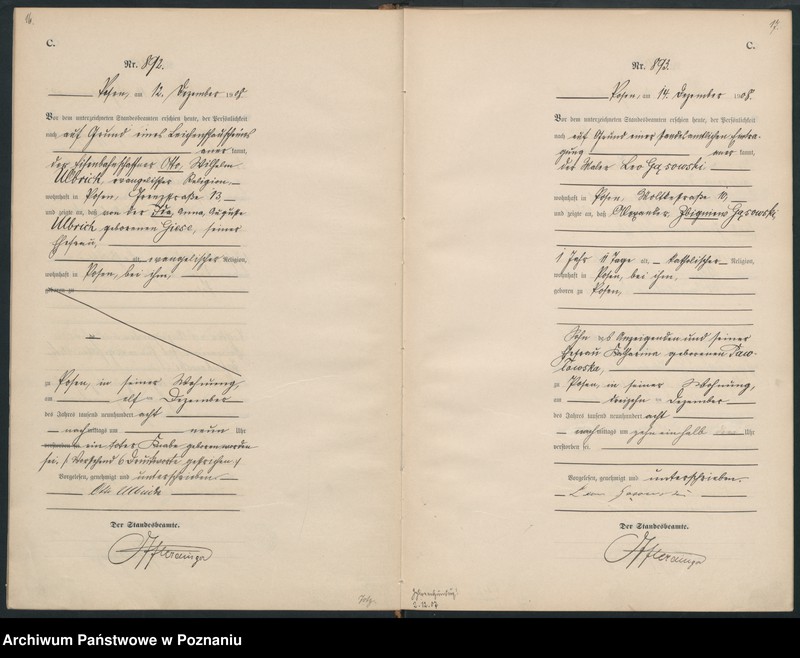 16.
C.
Nr. 892.
Posen, am 12. Dezember 1908.
Vor dem unterzeichneten Standesbeamten erschien heute, der Persönlichkeit
nach auf Grund eines Leichenschauscheines
kannt,
der Eisenbahnschaffner Otto Wilhelm
Ulbrich, evangelischer Religion,
wohnhaft in Posen, 13,
und zeigte an, daß von der Ida Anna Auguste
Ulbrich geborenen Giese, seiner
Ehefrau,
evangelischer Religion,
wohnhaft in Posen, bei ihm,
geboren zu
zu Posen, in seiner Wohnung,
am elften Dezember
des Jahres tausend neunhundert acht
nachmittags um neun Uhr
verstorben ein toter Knabe geboren worden
sei. / Vorstehend 6 Druckworte gestrichen. /
Vorgelesen, genehmigt und unterschrieben.
Otto Ulbrich
Der Standesbeamte.
17.
C.
Nr. 893.
Posen, am 14. Dezember 1908.
Vor dem unterzeichneten Standesbeamten erschien heute, der Persönlichkeit
nach auf Grund einer standesamtlichen Eintra-
gung kannt,
der Maler Leo Gąsowski
wohnhaft in Posen, Moltkestraße 10,
und zeigte an, daß Alexander Zbigniew Gąsowski,
1 Jahr 11 Tage alt, katholischer Religion,
wohnhaft in Posen, bei ihm,
geboren zu Posen,
Sohn des Anzeigenden und seiner
Ehefrau Katharina geborenen Paw-
lowska,
zu Posen, in seiner Wohnung,
am dreizehnten Dezember
des Jahres tausend neunhundert acht
nachmittags um zehn einhalb Uhr
verstorben sei.
Vorgelesen, genehmigt und unterschrieben.
Der Standesbeamte.
2.12.07
Archiwum Państwowe w Poznaniu